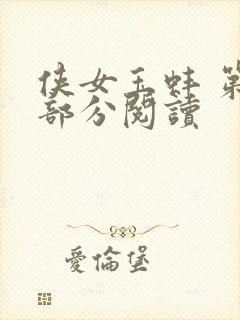 侠女玉蚌 第
部分閱讀
愛倫堡